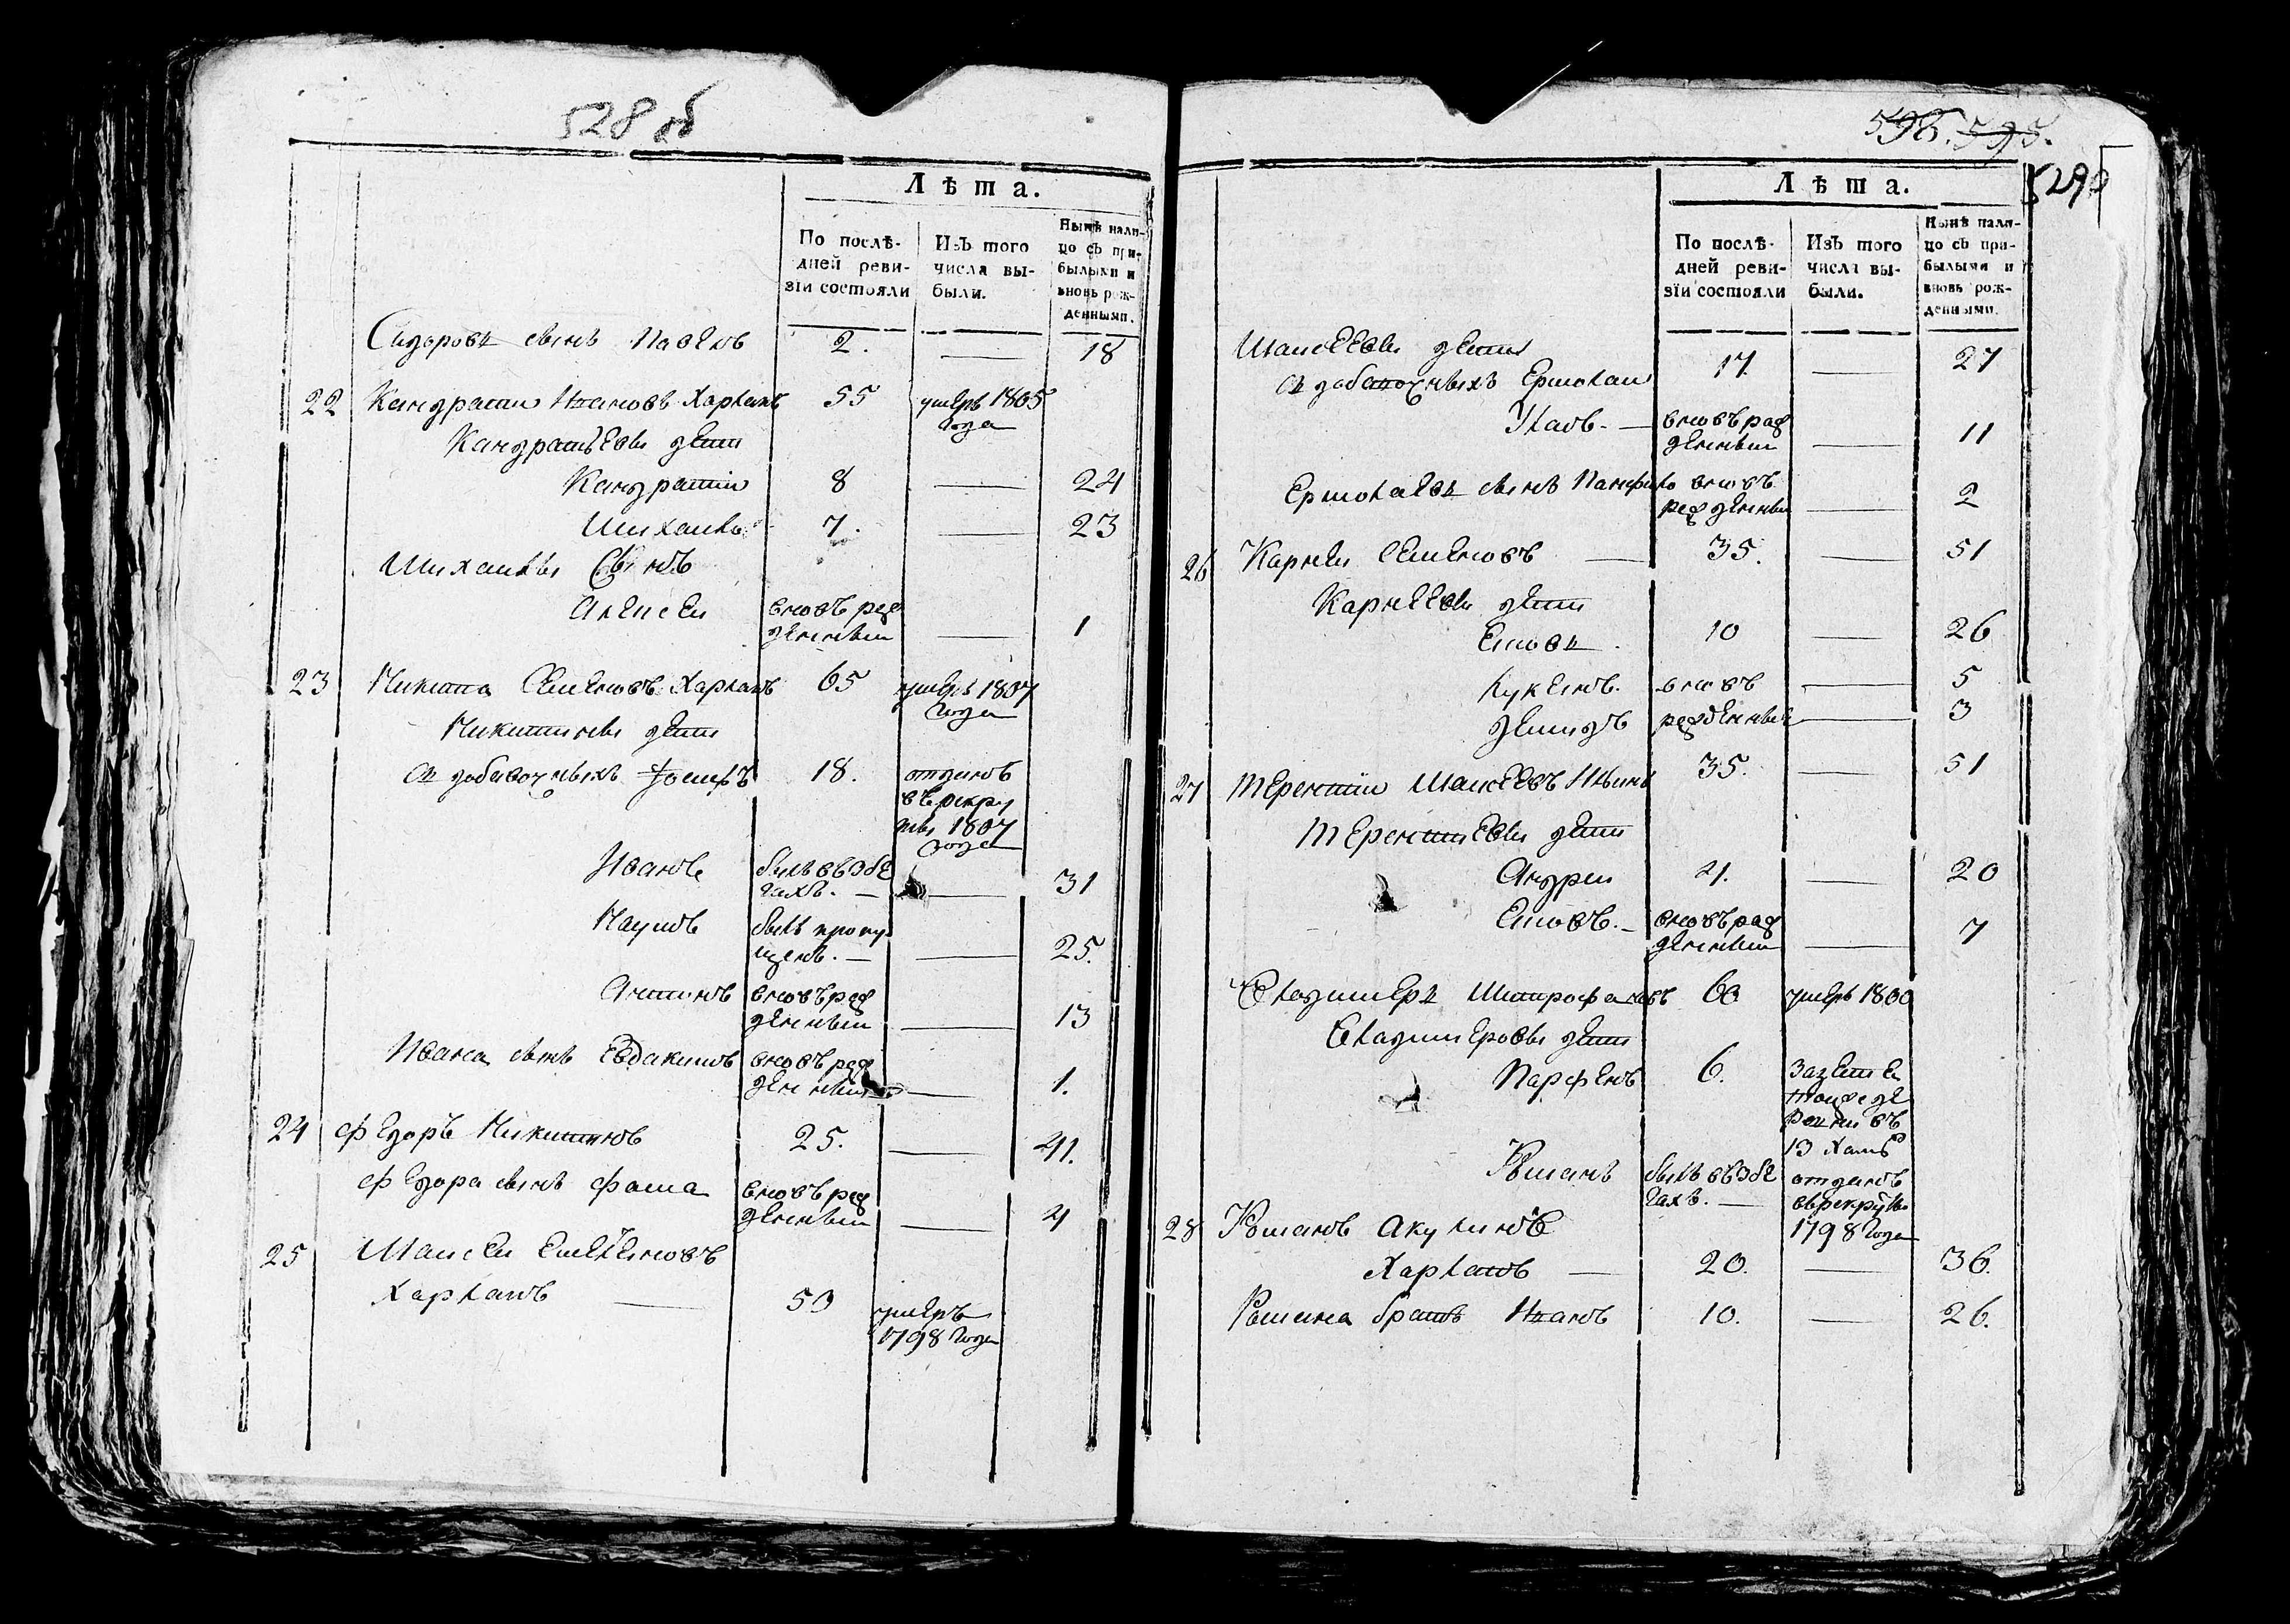 528 об
Лѣта.
По послѣ-
дней реви-
зіи состояли
Изъ того
числа вы-
были.
Нынѣ нали-
цо съ при-
былыми и
вновь рож-
денными.
Сидоровъ сынъ Павелъ 2. — 18
22 Кандратии Ивановъ Харламъ 55 умеръ 1805
года
Кандратьевы дети
Кандратии 8 — 24
Михаила 7. — 23
Михаилы Сынъ
Алексеи вновъ рож
денныи — 1
23 Никита Семеновъ Харламъ 65 умеръ 1807
года
Никитины дети
Иосифъ 18. отданъ
въ рекру
ты 1807
года
Иванъ былъ въ бе
гахъ. — — 31
Наумъ былъ пропу
щенъ. — — 25.
Антонъ вновъ рож
денныи — 13
Ивана сынъ Евдакимъ вновъ рож
денныи — 1.
24 Федоръ Никитинъ 25. — 41.
Федора сынъ Фама вновъ рож
денныи — 4
25 Маисеи Емельяновъ
Харламъ — 50 умеръ
1798 года
595.
529
Лѣта.
По послѣ-
дней реви-
зіи состояли
Изъ того
числа вы-
были.
Нынѣ нали-
цо съ при-
былыми и
вновь рож-
денными.
Маисеевы дети
Ермолаи 17 — 27
вновъ рож
денныи — 11
Ермолаевъ сынъ Панфилъ вновъ
рожденны — 2
26 Карнеи Семеновъ — 35. — 51
Карнеевы дети
10 — 26
Лукьянъ. вновъ — 5
Демидъ рожденные — 3
27 Терентии Маисеевъ 35. — 51
Терентиевы дети
Андреи 4. — 20
вновъ рож
денныи — 7
Владимеръ Митрофановъ 60 умеръ 1800
Владимеровы дети
Парфенъ 6.
Раманъ былъ въ бе
гахъ. — отданъ
въ рекруты
1798 года
28 Раманъ Акулинъ
Харламъ — 20. — 36.
Рамана братъ Иванъ 10. — 26.